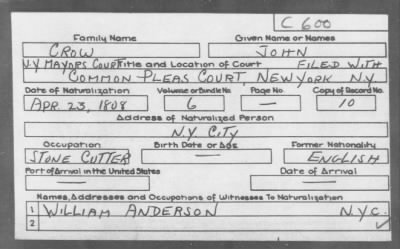 C 600
Family Name Given Name or Names
CROW JOHN
N.Y MAYORS COURT Title and Location of Court FILED WITH
COMMON PLEAS COURT, NEW YORK N.Y.
Date of Naturalization Volume or Bundle No. Page No. Copy of Record No.
APR. 23, 1808 6 — 10
Address of Naturalized Person
N.Y. CITY
Occupation Birth Date or Age Former Nationality
STONE CUTTER — ENGLISH
Port of Arrival in the United States Date of Arrival
— —
Names, Addresses and Occupations of Witnesses To Naturalization
1 WILLIAM ANDERSON N.Y.C.
2